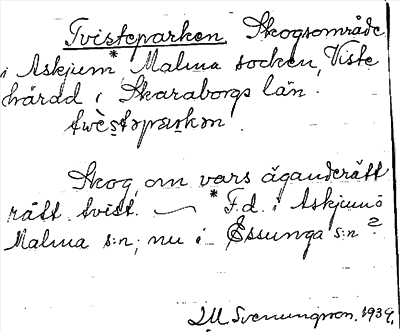 Tvisteparken. Skogsområde
i Askjum* Malma socken, Viste
härad i Skaraborgs län.
twèstəparkən.
Skog, om vars äganderätt
rått tvist. — * F.d. i Askjums
Malma s:n; nu i Essunga s:n?
Svenungsson. 1939.